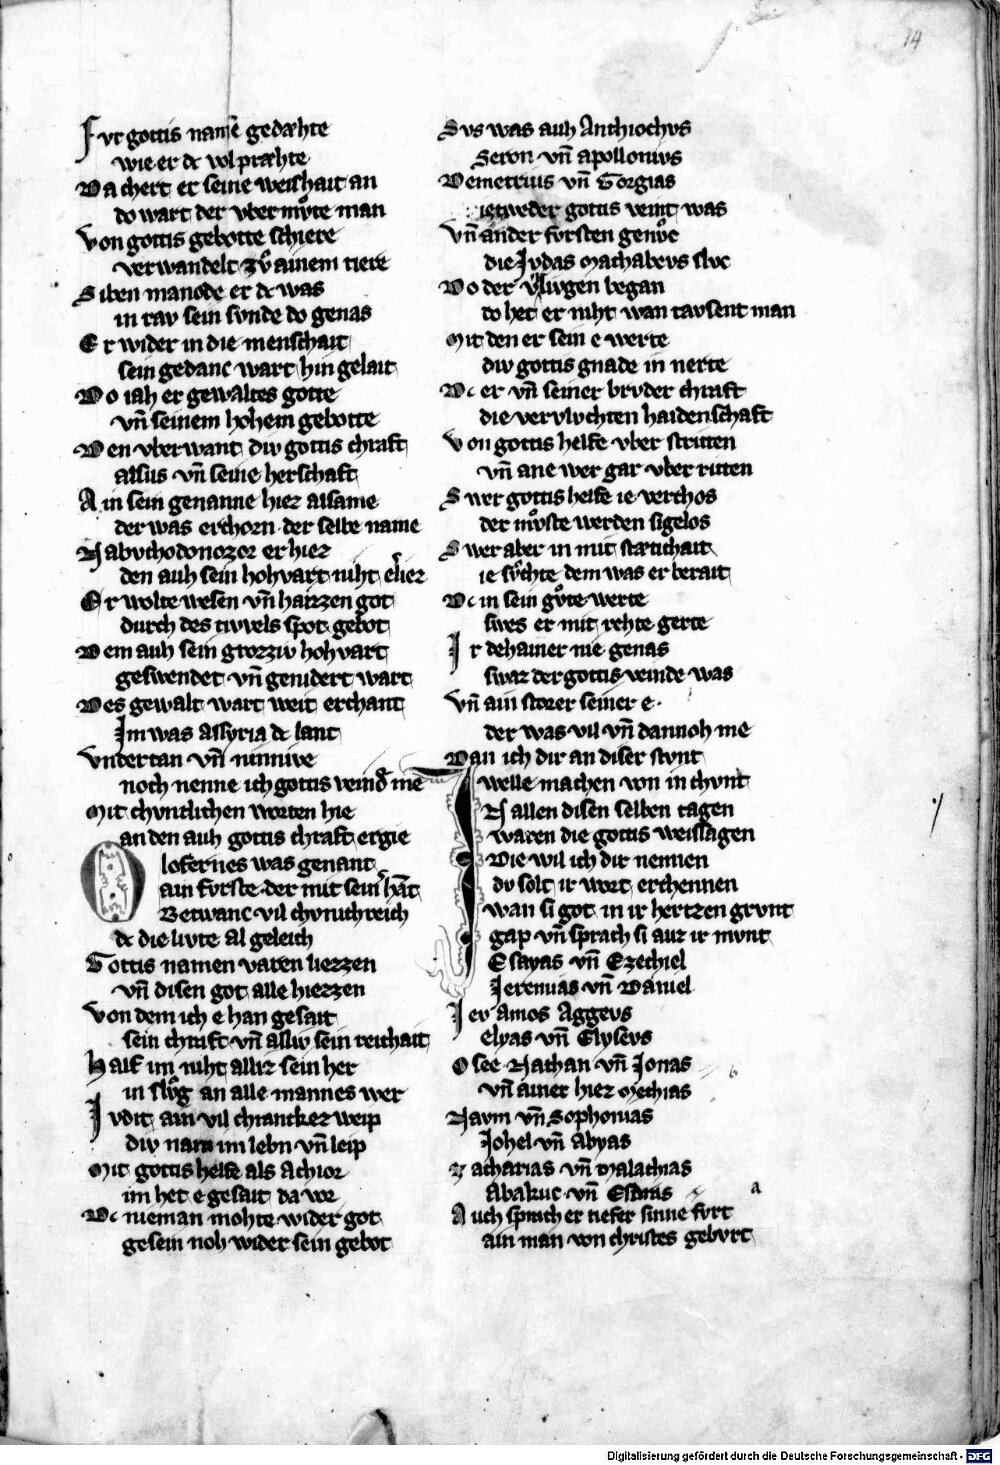 14
Fvr gottis namē gedæhte
wie er dc volpræhte
Da chert er seine weishait an
do wart der vbermvͦte man
Von gottis gebotte schiere
verwandelt zvͦ ainem tiere
Siben manode er dc was
in rav sein svnde do genas
Er wider in die menschait
sein gedanc wart hin gelait
Do iah er gewaltes gotte
vn̄ seinem hohem gebotte
Den vberwant div gottis chraft
alsus vn̄ seine herschaft
Ain sein genanne hiez alsame
der was erchorn der selbe name
Nabvchodonozor er hiez
den auh sein hohvart niht
Er wolte wesen vn̄ haizzen got
durch des tivvels spot gebot
Dem auh sein grozziv hohvart
geswendet vn̄ genidert wart
Des gewalt wart weit erchant
Im was assyria dc lant
Vndertan vn̄ ninnive
noch nenne ich gottis veind me
Mit chvntlichen worten hie
an den auh gottis chraft ergie
Olofernes was genant
ain fvrste der mit sein hāt
Betwanc vil chvnichreich
dc die livte al geleich
Gottis namen varen liezzen
vn̄ disen got alle hiezzen
Von dem ich e han gesait
sein chraft vn̄ alliv sein reichait
Half im niht allez sein her
in slvͦg an alle mannes wer
Ivdit ain vil chrancker weip
div nam im lebn vn̄ leip
Mit gottis helfe als Achior
im het e gesait da vor
Dc nieman mohte wider got
gesein noh wider sein gebot
Svs was auh Anthiochvs
Seron vn̄ apollonivs
Demetrius vn̄ Gorgias
ietweder gottis veint was
Vn̄ ander fvrsten genvͦc
die Jvdas Machabevs slvc
Do der vrlivgen began
do het er niht wan tavsent man
Mit den er sein e werte
div gottis gnade in nerte
Dc er vn̄ seiner brvder chraft
die vervlvchten haidenschaft
Von gottis helfe vber stritten
vn̄ ane wer gar vber ritten
Swer gottis helfe ie verchos
der mvͦste werden sigelos
Swer aber in mit stætichait
ie svͦchte dem was er berait
Dc in sein gvͦte werte
swes er mit rehte gerte
Ir dehainer nie genas
swaz der gottis veinde was
Vn̄ ain storer seiner e
der was vil vn̄ dannoh me
Dan ich dir an diser stvnt
welle machen von in chvnt
In allen disen selben tagen
waren die gottis weissagen
Die wil ich dir nennen
dv solt ir wort erchennen
wan si got in ir hertzen grvnt
gap vn̄ sprach si auz ir mvnt
Esayas vn̄ Ezechiel
Jeremias vn̄ Daniel
Iev amos Aggevs
elyas vn̄ Elysevs
Osee Nathan vn̄ Jonas
vn̄ ainer hiez Mechias
b
Navm vn̄ Sophonias
Johel vn̄ abyas
Zacharias vn̄ Malachias
Abakuc vn̄ Esdras
a
Auch sprach er tiefer sinne fvrt
ain man von christes gebvrt
Digitalisierung gefördert durch die Deutsche Forschungsgemeinschaft - DFG